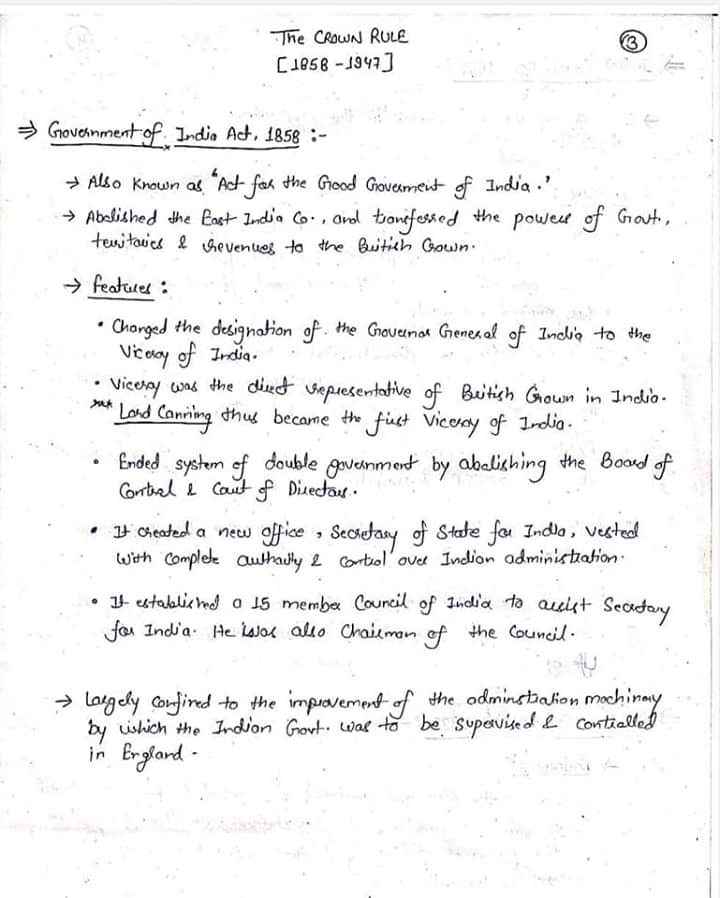 The CROWN RULE
③
[1858 - 1947]
⇒ Government of India Act, 1858 :-
→ Also Known as "Act for the Good Government of India.'
→ Abolished the East India Co., and transferred the powers of Govt.,
territories & revenues to the British Crown.
→ features :
• Changed the designation of the Governor General of India to the
Viceroy of India.
• Viceroy was the direct representative of British Crown in India.
*** Lord Canning thus became the first Viceroy of India.
• Ended system of double government by abolishing the Board of
Control & Court of Directors.
• It created a new office, Secretary of State for India, vested
with complete authority & control over Indian administration.
• It established a 15 member Council of India to assist Secretary
for India. He was also Chairman of the Council.
→ largely confined to the improvement of the adminstration machinary
by which the Indian Govt. was to be supervised & controlled
in England -